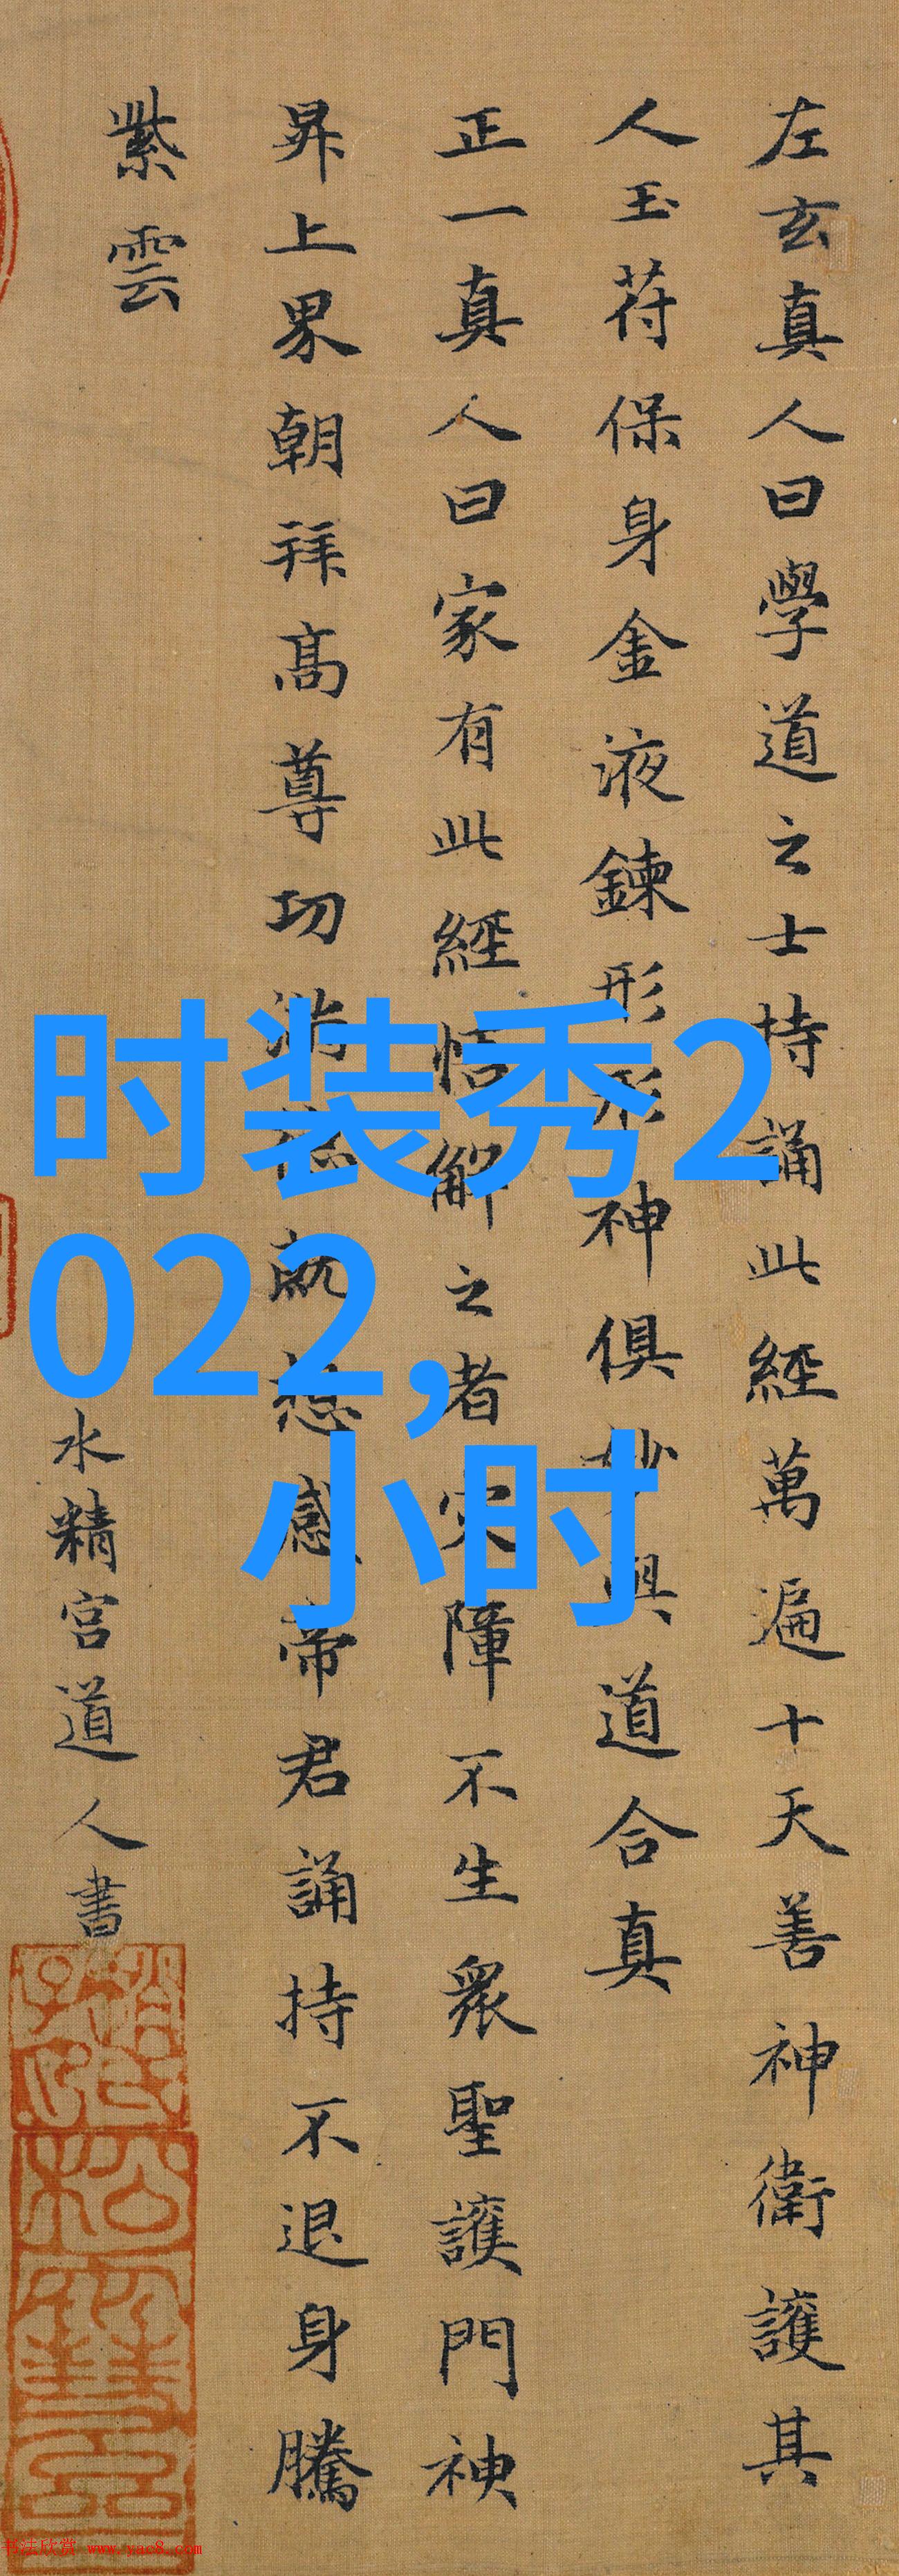 左玄真人曰學道之士持誦此經萬遍十天善神衛護其
人玉符保身金液鍊形形神俱妙與道合真
正一真人曰家有此經悟解之者災障不生衆聖護門神
昇上界朝拜高尊功滿德就想感帝君誦持不退身騰
紫雲
水精宮道人書
时装秀2
022,
小时
松雪
书法欣赏 www.yac8.com